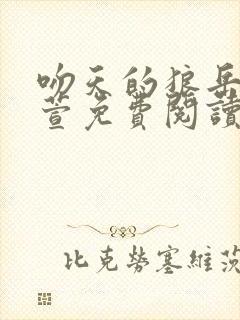 吻天的狼岳
萱免費閱讀
比克勞塞維茨